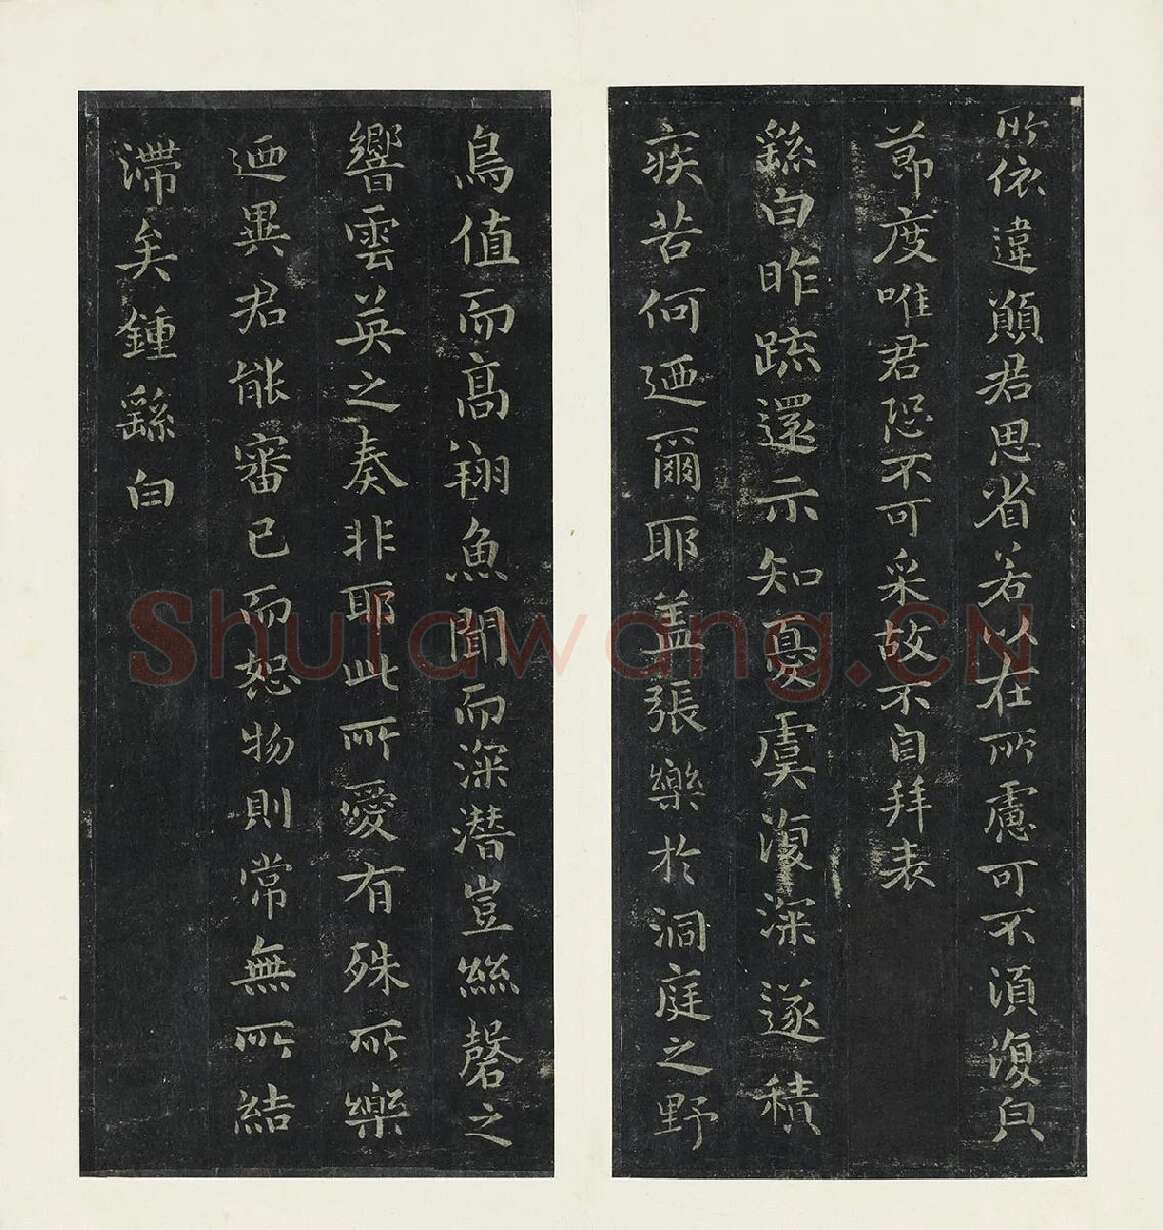 所依違願君思省若以在所慮可不湏復皃
節度唯君恐不可采故不自拜表
繇白昨疏還示知憂虞復深遂積
疾苦何迺爾耶盖張樂於洞庭之野
鳥值而高翔魚聞而深潛豈絲磬之
響雲英之奏非耶此所愛有殊所樂
迺異君能審己而恕物則常無所結
滯矣鍾繇白
Shufawang.CN